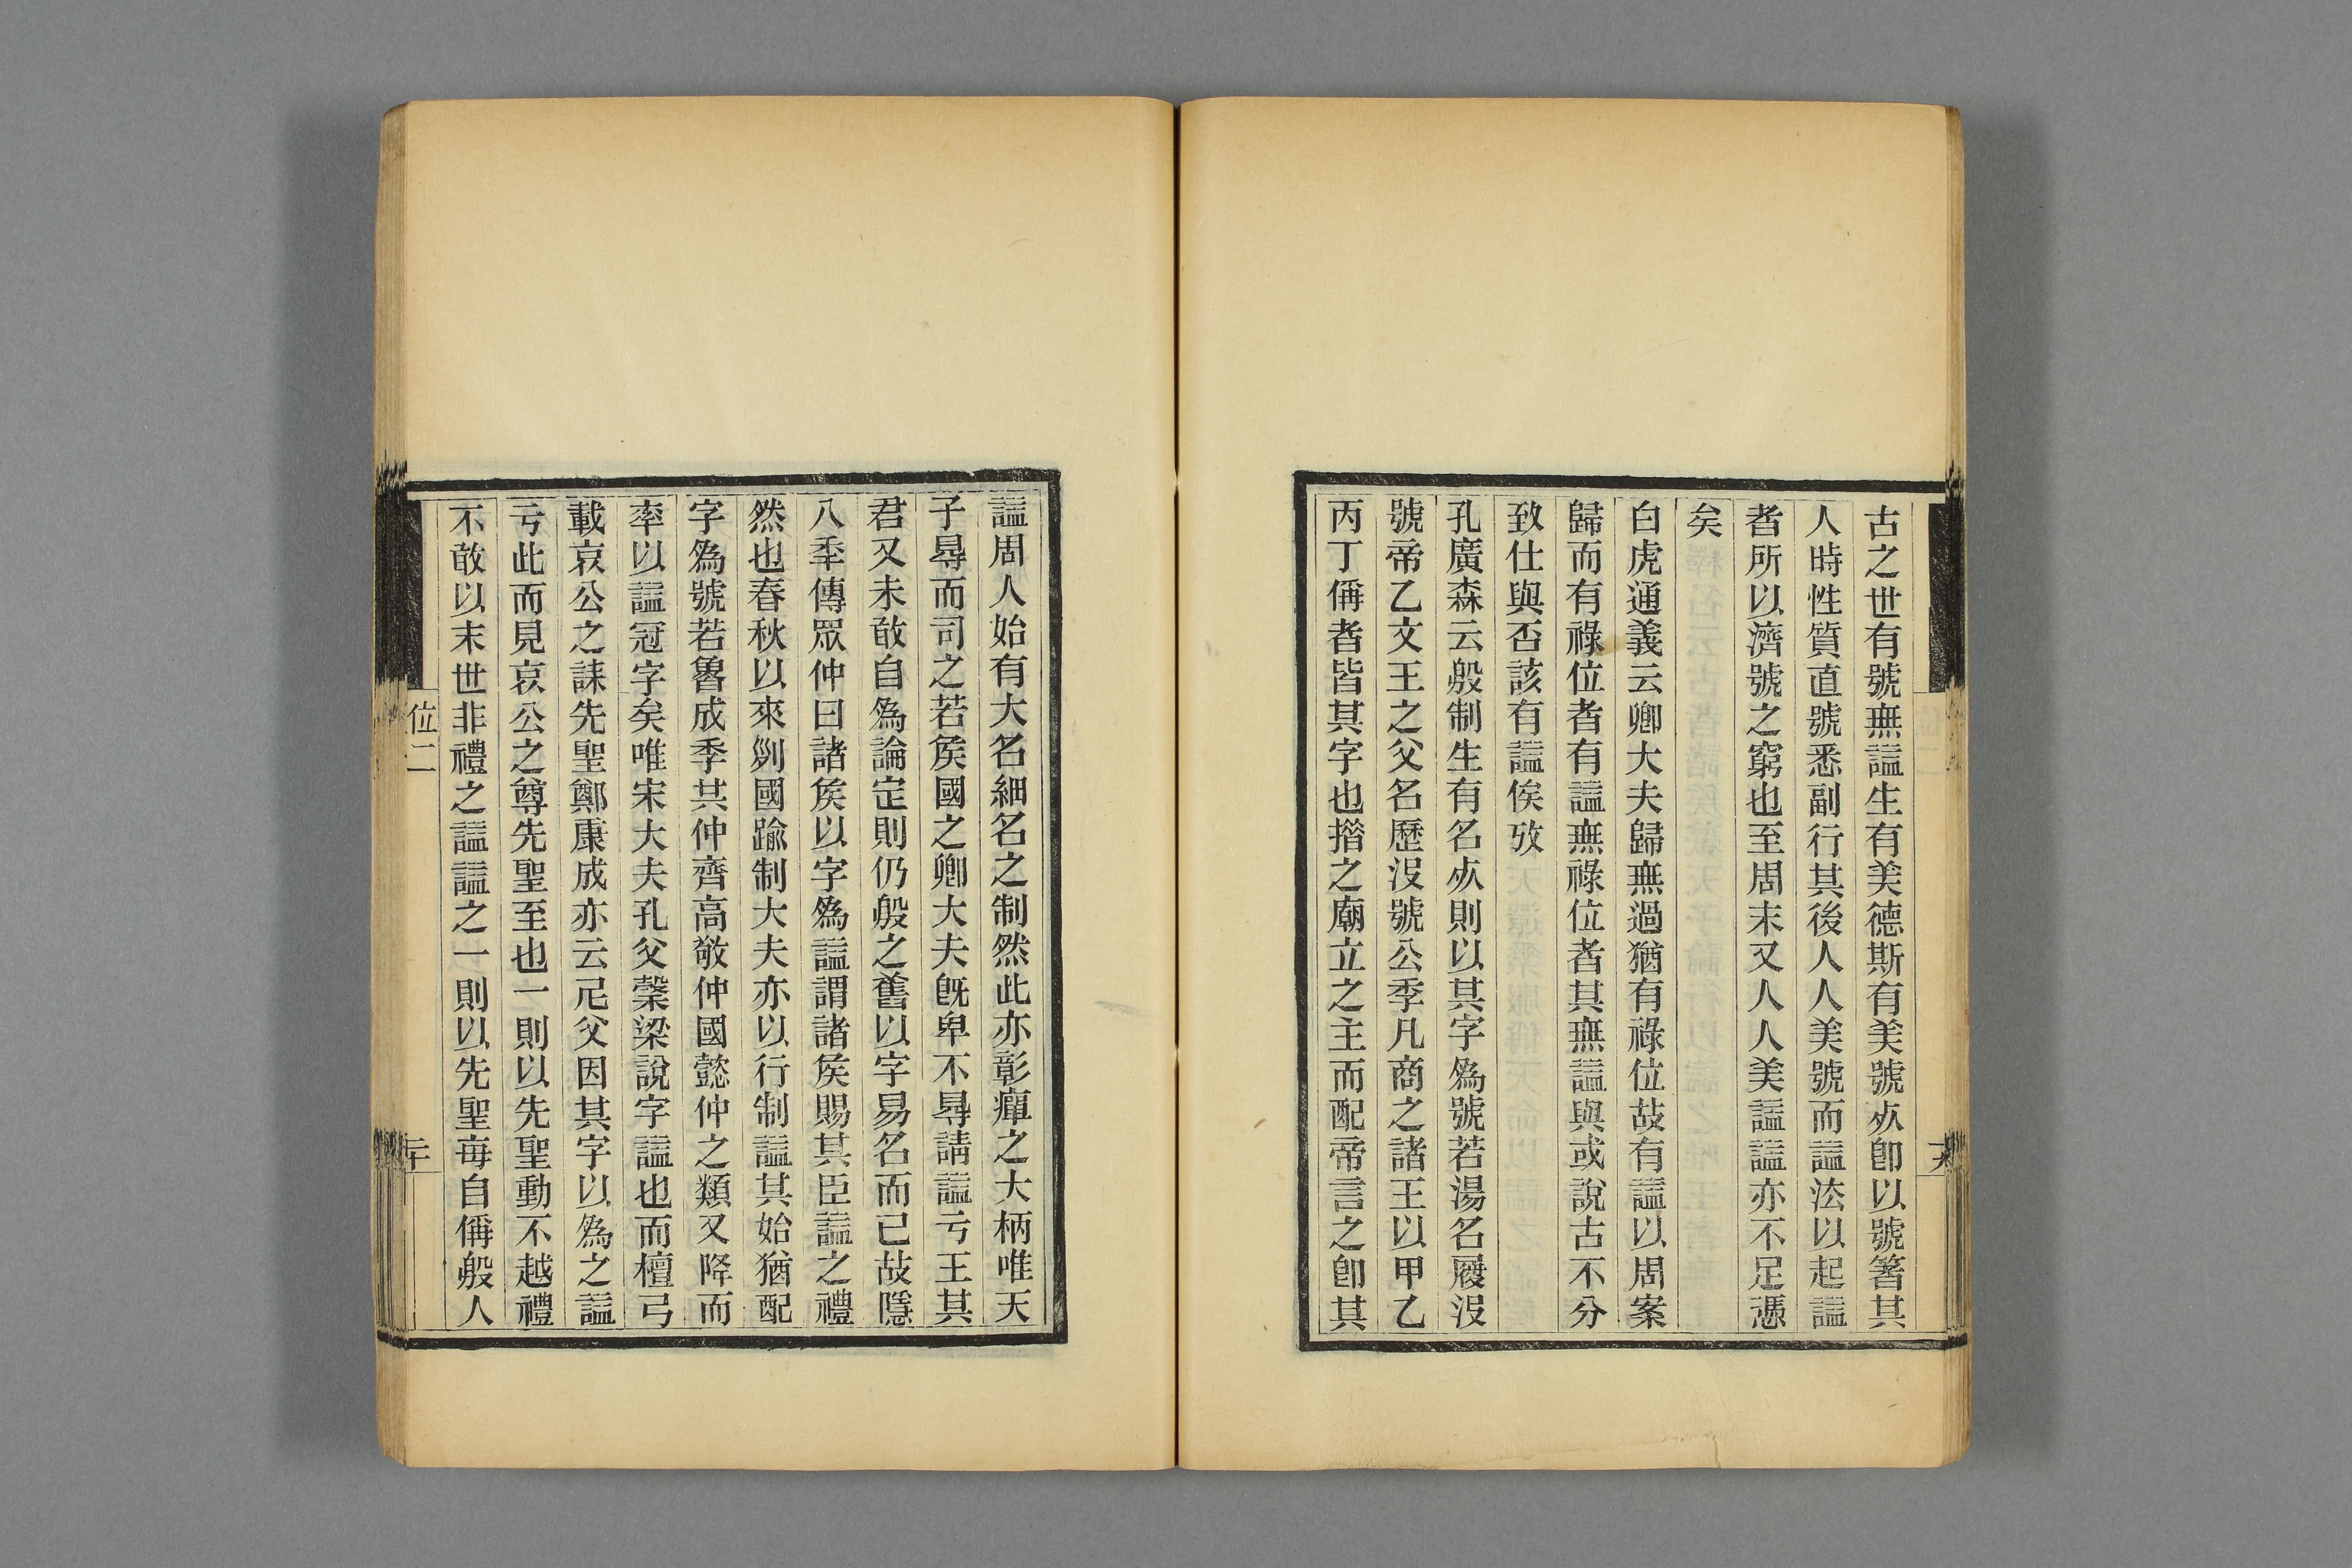 古之世有號無諡生有美德斯有美號𣦸卽以號箸其
人時性質直號悉副行其後人人美號而諡法以起諡
者所以濟號之窮也至周末又人人美諡諡亦不足憑
矣
白虎通義云卿大夫歸無過猶有祿位故有諡以周案
歸而有祿位者有諡無祿位者其無諡與或說古不分
致仕與否該有諡俟攷
孔廣森云殷制生有名𣦸則以其字爲號若湯名履没
號帝乙文王之父名歷没號公季凡商之諸王以甲乙
丙丁偁者皆其字也揩之廟立之主而配帝言之卽其
諡周人始有大名細名之制然此亦彰癉之大柄唯天
子㝵而司之若矦國之卿大夫旣卑不㝵請諡亏王其
君又未敢自爲論定則仍殷之舊以字易名而已故隱
八秊傳眾仲曰諸矦以字爲諡謂諸矦賜其臣諡之禮
然也春秋以來剡國踰制大夫亦以行制諡其始猶配
字爲號若魯成季共仲齊高敬仲國懿仲之類又降而
率以諡冠字矣唯宋大夫孔父榖梁說字諡也而檀弓
載哀公之誄先聖鄭康成亦云尼父因其字以爲之諡
亏此而見哀公之尊先聖至也一則以先聖動不越禮
不敢以末世非禮之諡諡之一則以先聖每自偁殷人
位二